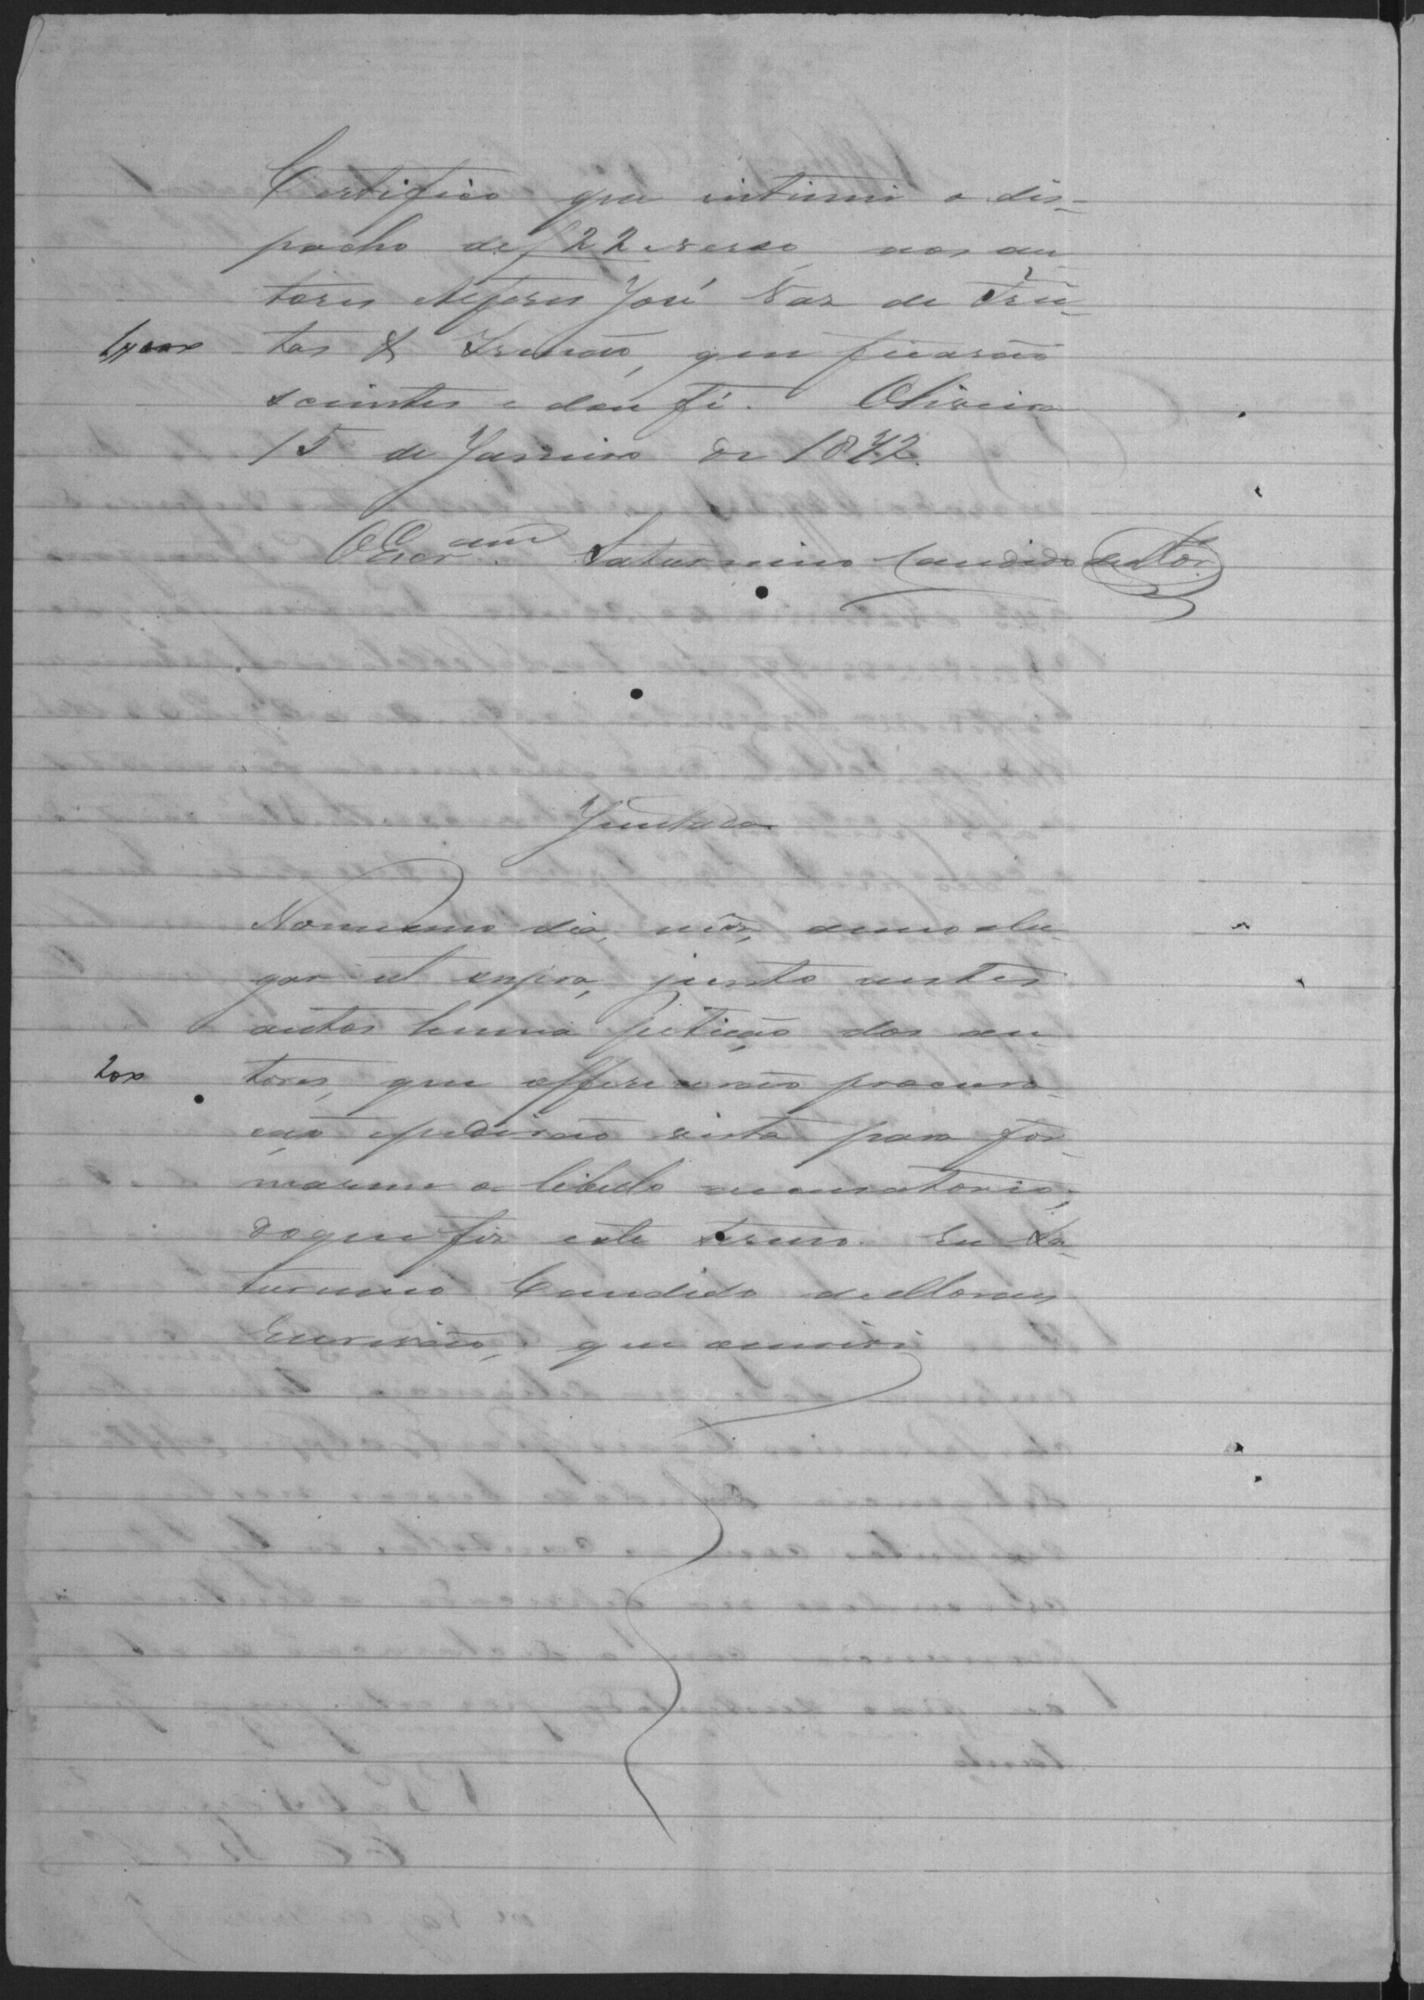 Certifico que intimei o dis-
pacho de f 22 verso, aos au-
tores Alferes José Vaz de Frei-
tas & Irmão, que ficarão
scientes e dou fé. Oliveira
15 de Janeiro de 1872.
O Escr.am Saturnino Candido de Mor.
Juntada
No mesmo dia, mês, anno e lu-
gar ut supra, junto a estes
autos huma petição dos au-
200
tores, que offerecerão procura-
ção e pedirão vista para for-
marem o libello accusatorio;
do que fiz este termo. Eu Sa-
turnino Candido de Moraes
Escrivão, que escrevi